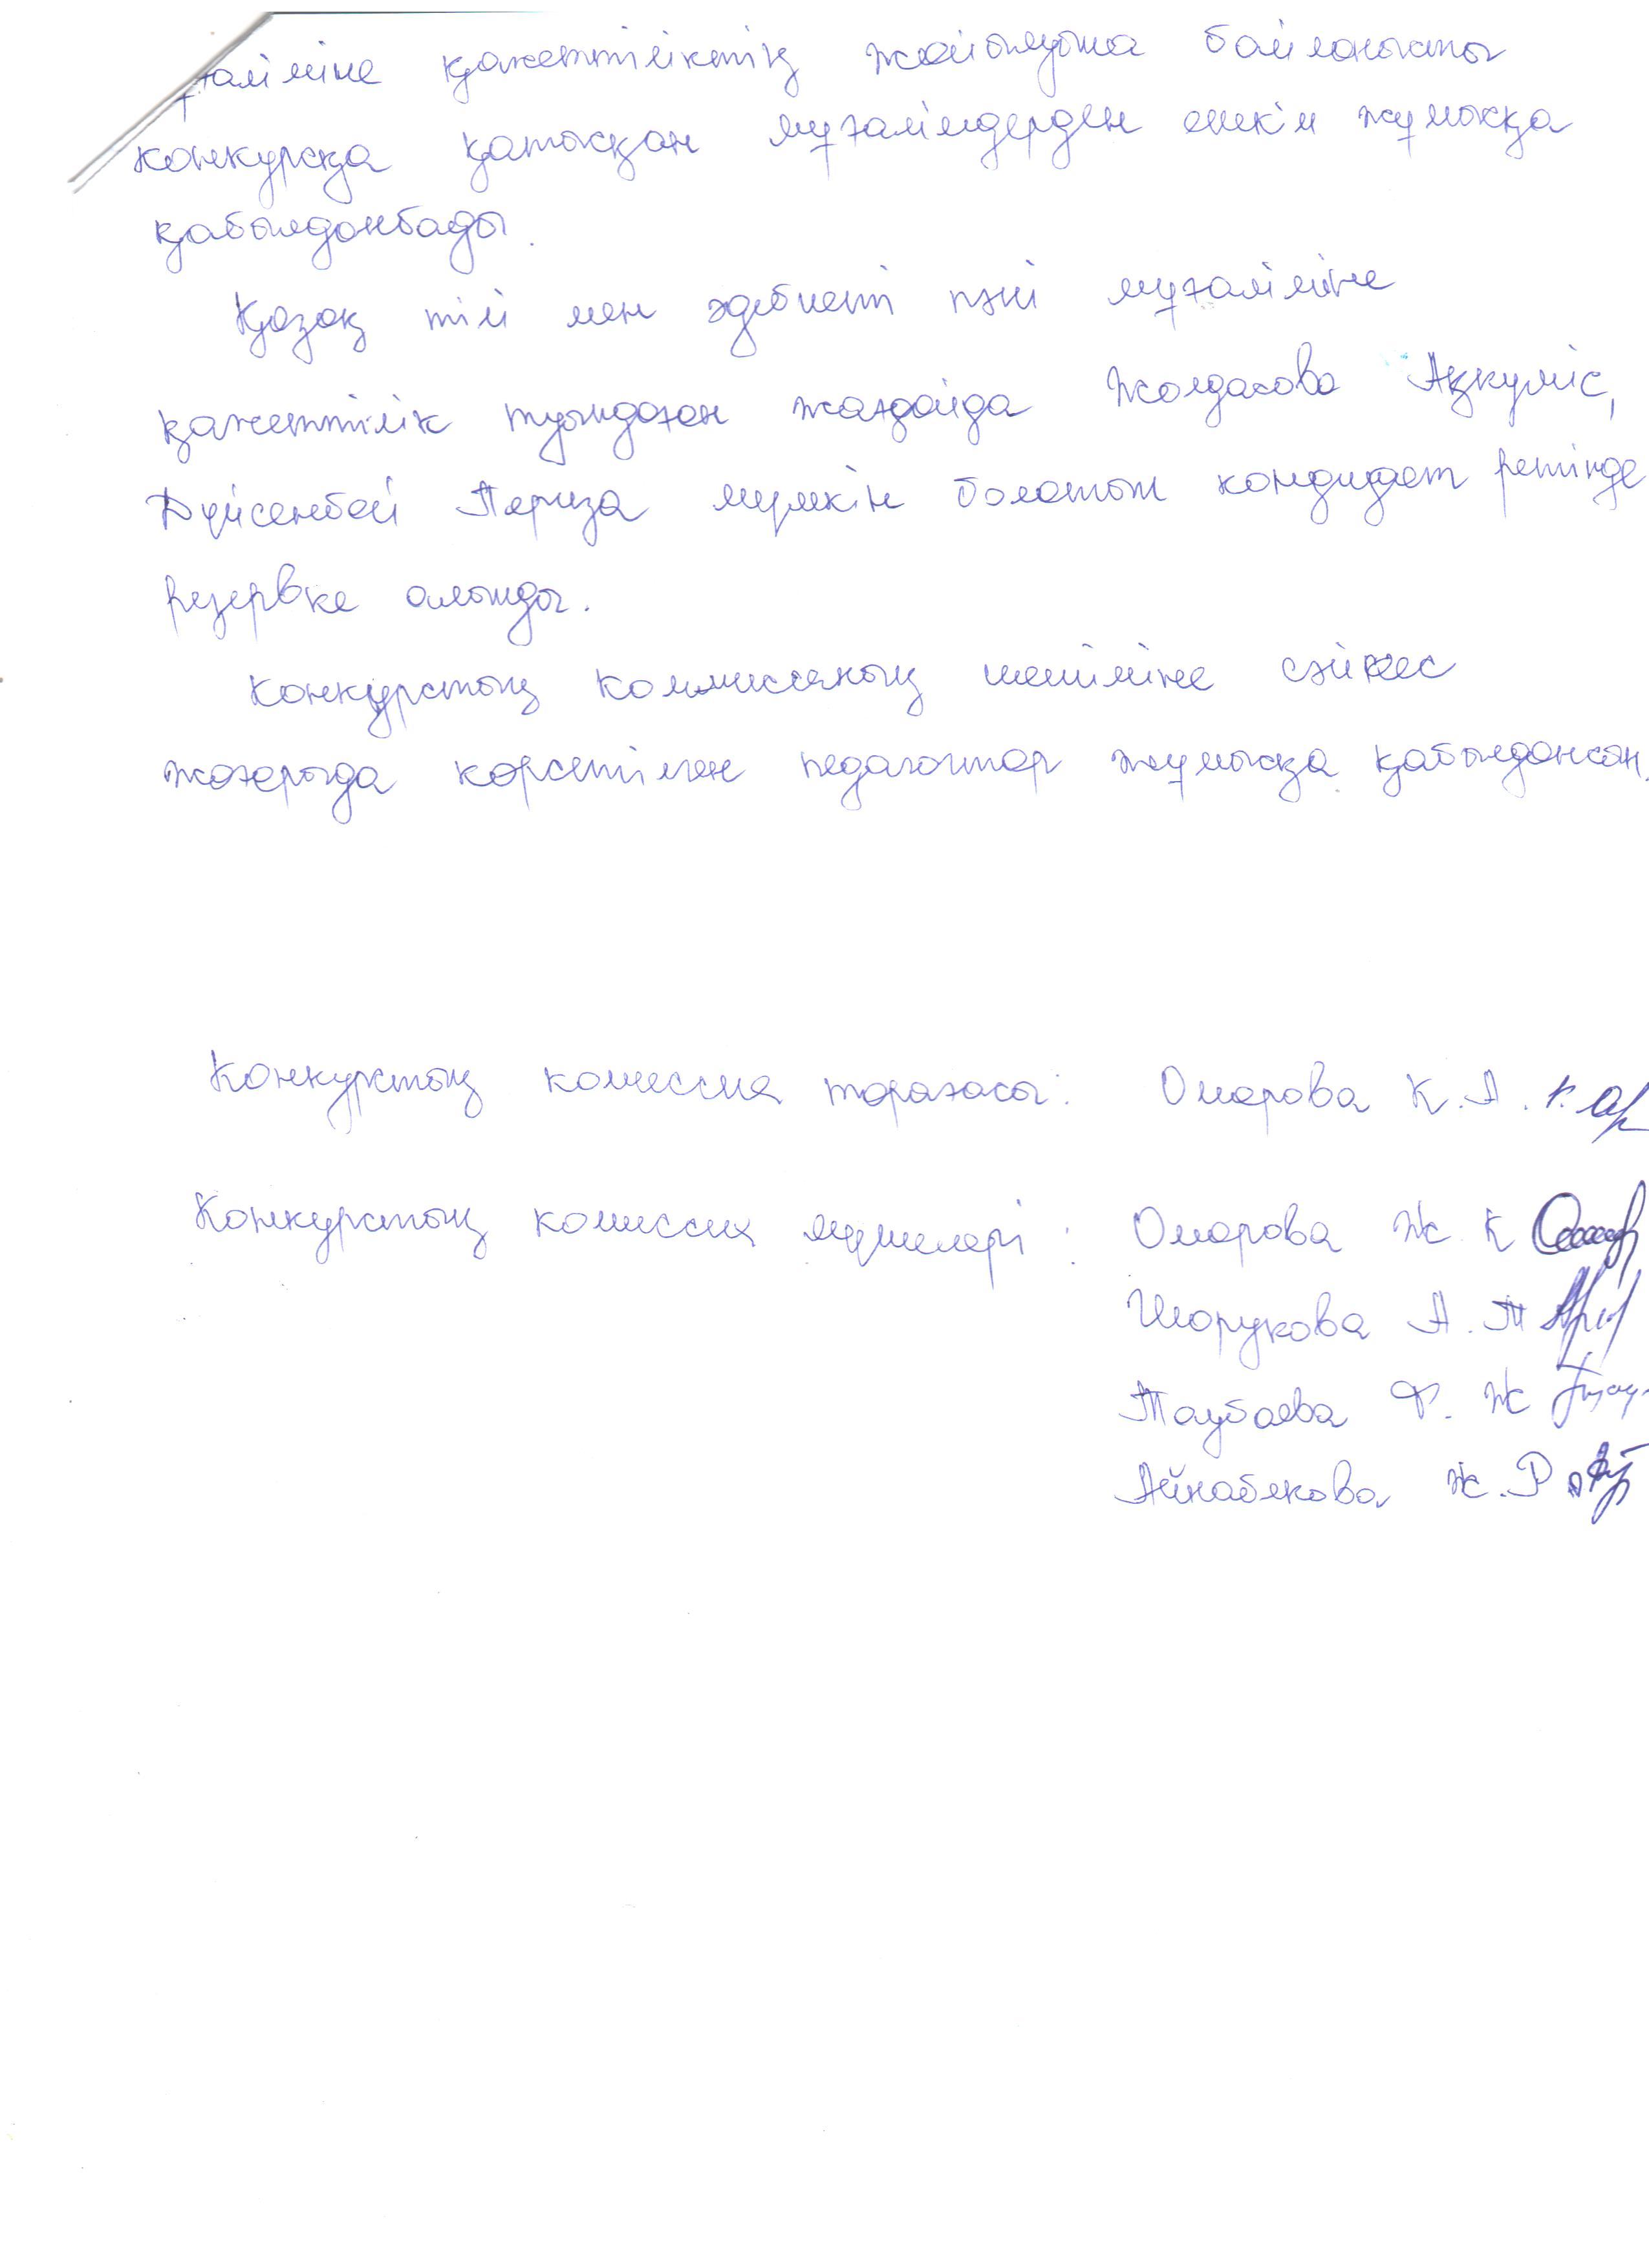 ғаліміне қажеттіліктің жойылуына байланысты
конкурсқа қатысқан мұғалімдерден ешкім жұмысқа
қабылданбады.
Қазақ тілі мен әдебиеті пәні мұғаліміне
қажеттілік туындаған жағдайда Жолдасова Ақкүміс,
Дүйсенбай Періза мүмкін болатын кандидат ретінде
резервке алынды.
Конкурстың коммиссяның шешіміне сәйкес
жоғарыда көрсетілген педагогтар жұмысқа қабылдансын.
Конкурстың комиссия торағасы: Омарова К.А.
Конкурстың комиссия мүшелері: Омарова Ж.К
Шорукова А.Т
Таубаева Ф.Ж
Айнабекова Ж.Р